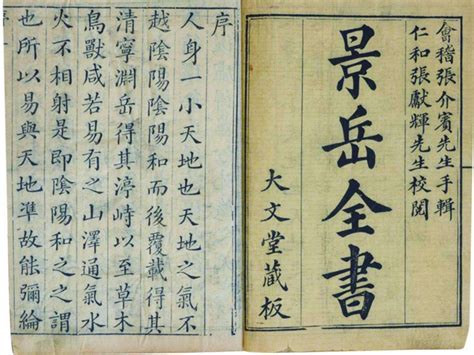 會稽張介賓先生手輯
仁和張獻輝先生校閱
景岳全書
大文堂藏板
序
人身一小天地也天地之氣不
越陰陽陰陽和而後覆載得其
清寧淵岳得其渟峙以至草木
鳥獸咸若易有之山澤通氣水
火不相射是即陰陽和之之謂
也所以易與天地準故能彌綸